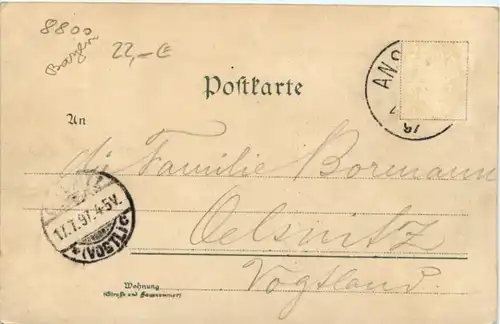 8800
Bayern
22,- €
Postkarte
ANS
An
die Familie Bormann
17.7.97. 4-5V.
(VOGTL)
Oelsnitz
Vogtland.
Wohnung
(Straße und Hausnummer)